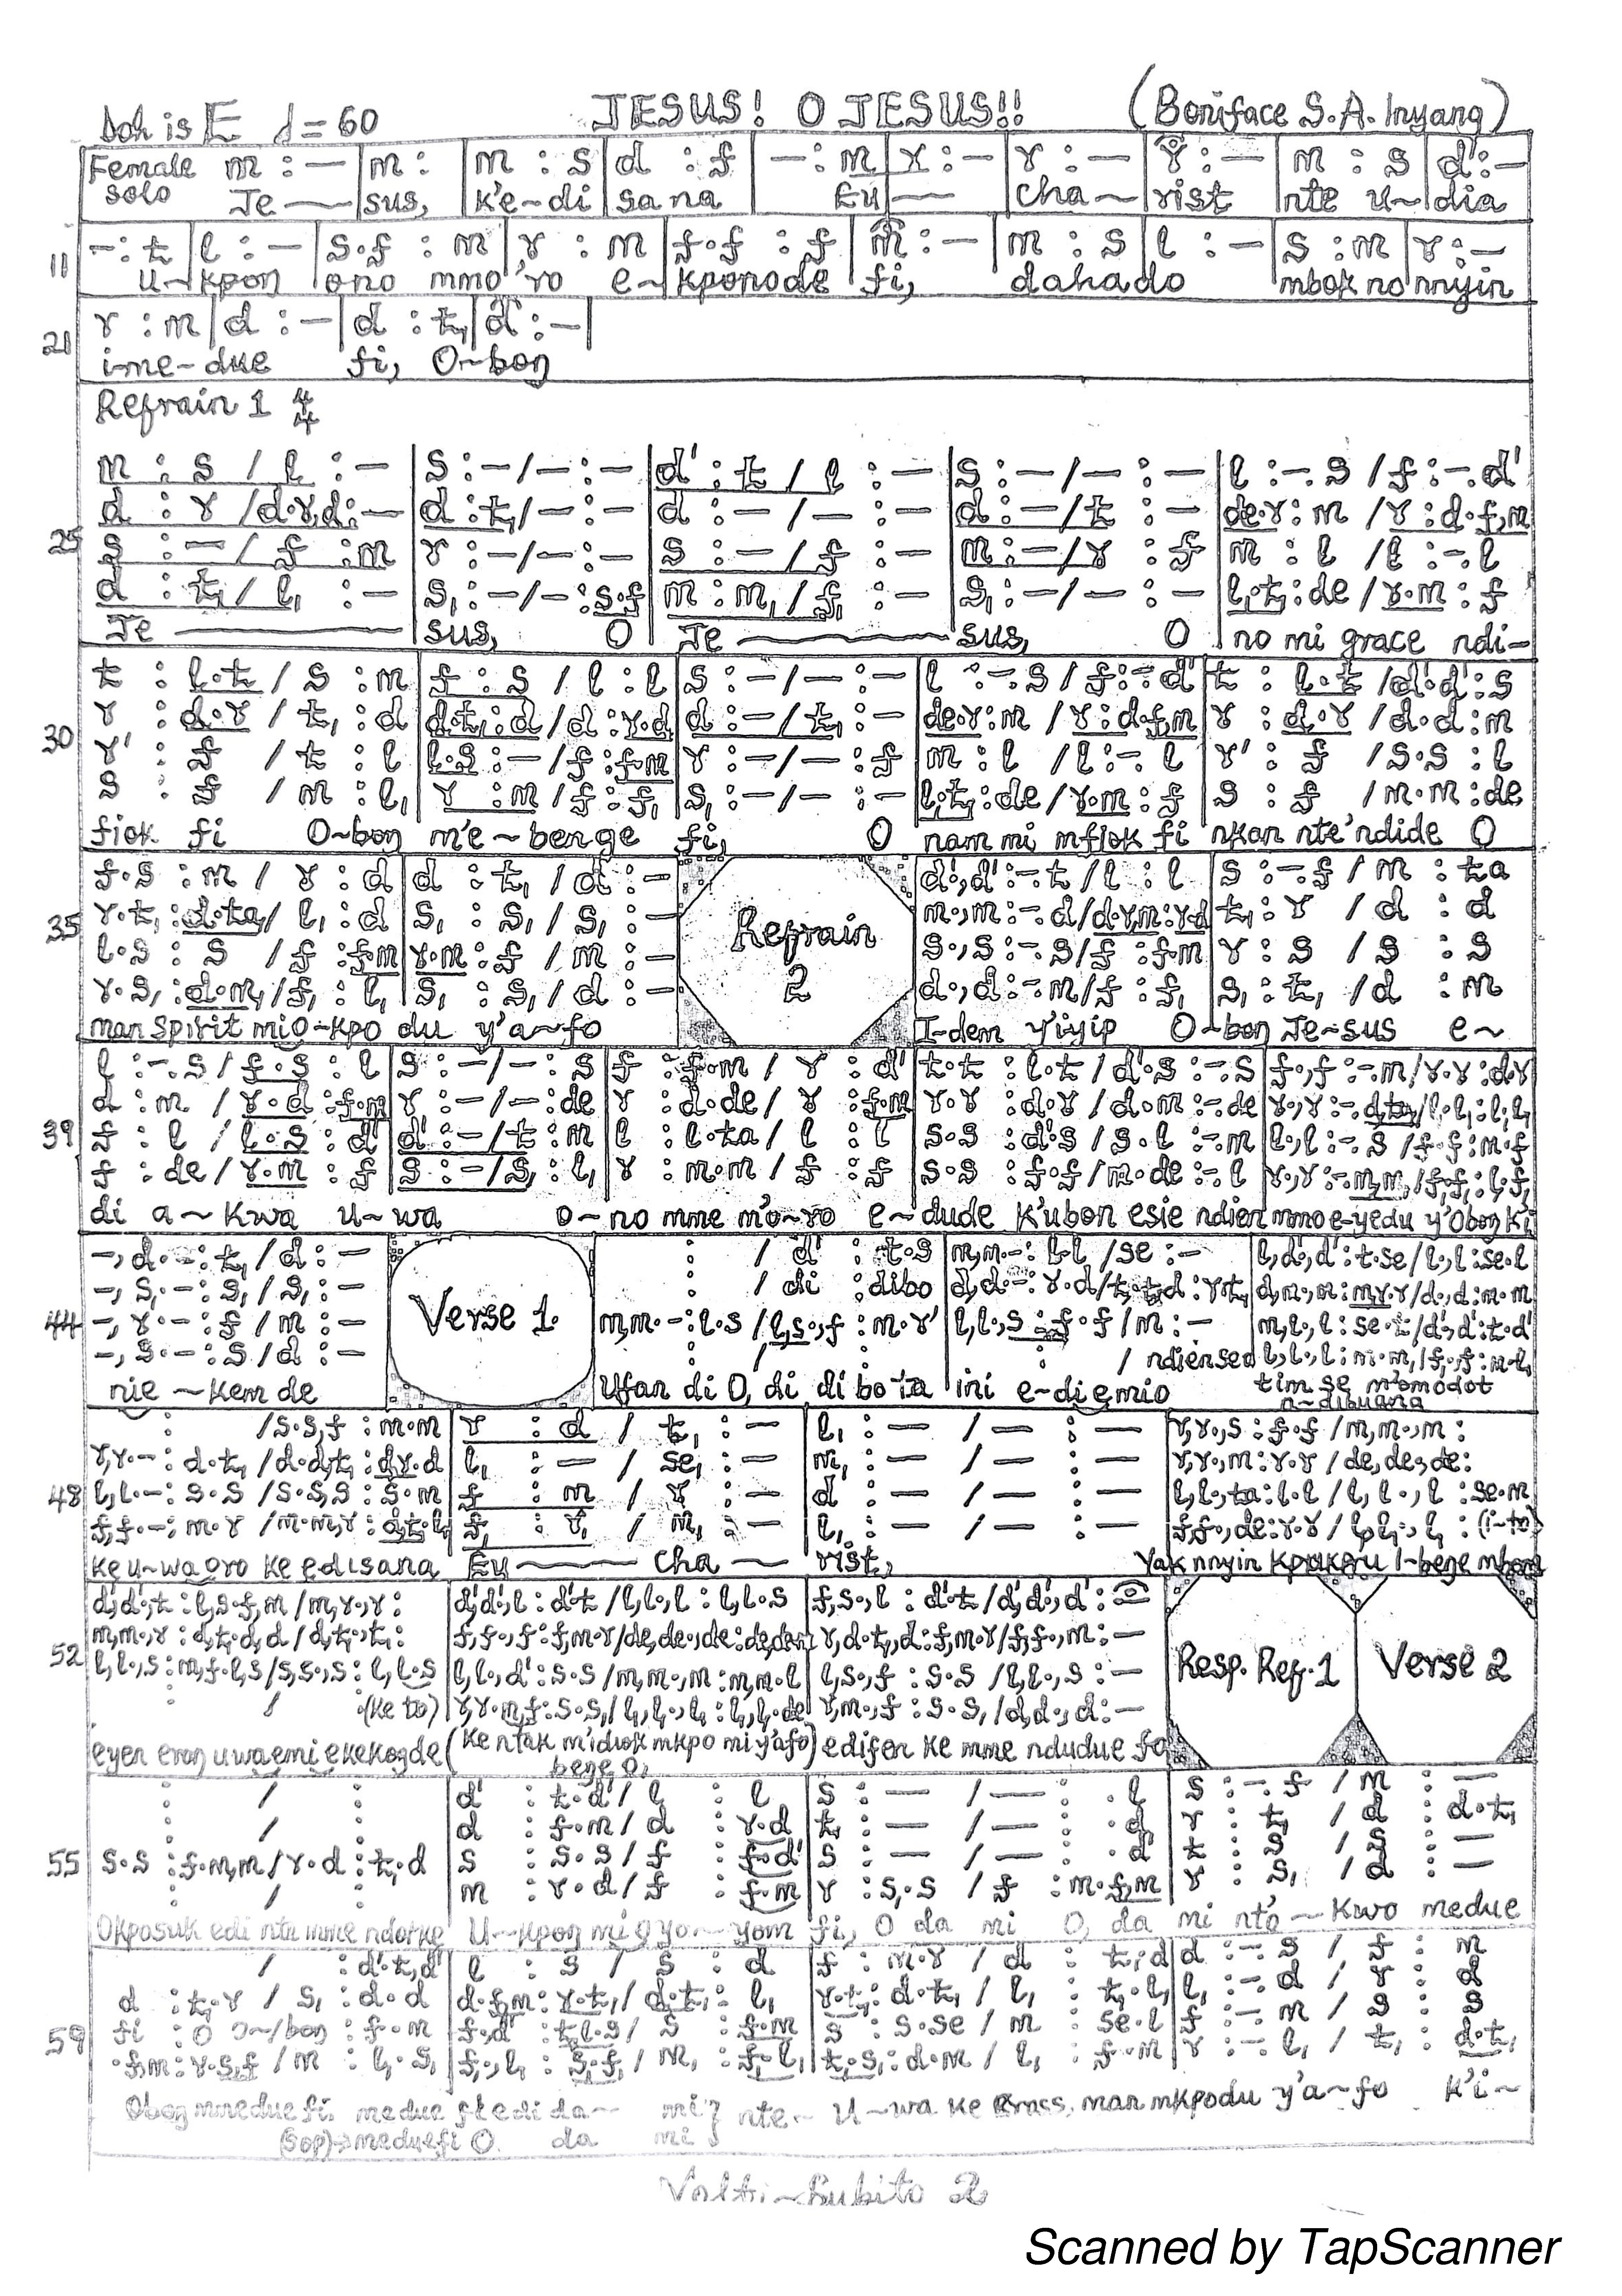 Doh is E d = 60 JESUS! O JESUS!! (Boniface S.A. Inyang)
Female solo m : – | m : | m : s | d : f | – : m | r : – | r : – | r : – | m : s | d' : –
Je — sus, k'e-di sana Eu — cha ~ rist nte u~dia
11 – : t | l : – | s.f : m | r : m | f.f : f | m : – | m : s | l : – | s : m | r : –
u~kpon ono mmo'ro e~kponode fi, dahado mbok no nnyin
21 r : m | d : – | d : t, | d : – |
i-me-due fi, O~bon
Refrain 1 4/4
m : s / l : – | s : – / – : – | d' : t / l : – | s : – / – : – | l : –. s / f : –. d'
d : r / d.r,d : – | d : t, / – : – | d : – / – : – | d : – / t : – | de.r : m / r : d.f,m
25 s : – / f : m | r : – / – : – | s : – / f : – | m : – / r : f | m : l / l : –. l
d : t, / l, : – | s, : – / – : s.f | m : m, / f, : – | s, : – / – : – | l,.t, : de / r.m : f
Je — sus, O Je — sus, O no mi grace ndi-
t : l.t / s : m | f : s / l : l | s : – / – : – | l : –. s / f : –. d' | t : l.t / d'.d' : s
30 r : d.r / t, : d | d.t, : d / d : r.d | d : – / t, : – | de.r : m / r : d.f,m | r : d.r / d.d : m
r' : f / t : l | l.s : – / f : f.m | r : – / – : f | m : l / l : –. l | r' : f / s.s : l
s : f / m : l, | r : m / f : f, | s, : – / – : – | l,.t, : de / r.m : f | s : f / m.m : de
fiok fi O~bon m'e~benge fi, O nam mi mfiok fi nkan nte'ndide O
f.s : m / r : d | d : t, / d : – | Refrain 2 | d'., d' : –. t / l : l | s : –. f / m : ta
35 r.t, : d.ta, / l, : d | s, : s, / s, : – | m., m : –. d / d.r,m : r.d | t, : r / d : d
l.s : s / f : f.m | r.m : f / m : – | s., s : –. s / f : f.m | r : s / s : s
r.s, : d.m, / f, : l, | s, : s, / d : – | d., d : –. m / f : f, | s, : t, / d : m
man spirit mi o-kpo du y'a~fo I-dem y'iyip O~bon Je~sus e~
l : –. s / f.s : l | s : – / – : s | f : f.m / r : d' | t.t : l.t / d'.s : –. s | f., f : –. m / r.r : d.r
39 d : m / r.d : f.m | r : – / – : de | r : d.de / r : f.m | r.r : d.r / d.m : –. de
f : l / l.s : d' | d' : – / t : m | l : l.ta / l : l | s.s : d'.s / s.l : –. m | l., l : –. s / f.f : m.f
f : de / r.m : f | s : – / s, : l, | r : m.m / f : f | s.s : f.f / m.de : –. l
di a~kwa u~wa o~no mme m'o~ro e~dude k'ubon esie ndien mmo e-yedu y'Obon ki
–, d. – : t, / d : – | Verse 1. | : / d' : t.s
–, s,. – : s, / s, : – | : / di : dibo
44 –, r. – : f / m : – | m,m. – : l.s / l,s., f : m.r'
–, s. – : s / d : –
/ ndiensed
nie ~ kem de Ufan di O, di di bo ta ini e-diemio tim se m'omodot n-dibuana
: / s.s,f : m.m | r : d / t, : – | l, : – / – : – | r,r., s : f.f / m,m., m :
r,r. – : d.t, / d.d,t, : d,r.d | l, : – / se, : – | m, : – / – : – | r,r., m : r.r / de, de., de :
48 l,l. – : s.s / s.s,s : s.m | f : m / r : – | d : – / – : – | l,l., ta : l.l / l,l., l : se.m
f,f. – : m.r / m.m,r : d,t,.l, | f, : r, / m, : – | l, : – / – : – | (i~to)
ke u~wa oro ke edisana Eu — cha ~ rist, Yak nnyin kpukpru i~bene mbom
d',d'., t : l,s.f,m / m,r., r : | d',d'., l : d'.t / l,l., l : l,l.s | f,s., l : d'.t / d',d'., d' : –
52 m,m., r : d,t,.d,d / d,t,., t, : | Resp. Ref. 1 | Verse 2
l,l., s : m,f.l,s / s,s., s : l,l.s | l,l., d' : s.s / m,m., m : m,m.l | l,s., f : s.s / l,l., s : –
: / : (ke to) | r,m., f : s.s, / d,d., d : –
eyen eron uwa emi ekekonde (ke ntak m'idiok mkpo mi y'afo) edifen ke mme ndudue fo
bene O,
: / : | d' : t.d' / l : l | s : – / – : . l | s : –. f / m : –
: / : | d : f.m / d : r.d | t, : – / – : . d | r : t, / d : d.t,
55 s.s : f.m,m / r.d : t,.d | s : s.s / f : f.d' | s : – / – : . d' | t : s / s : –
: / : | m : r.d / f : f.m | r : s,.s / f : m.f,m | r : s, / d : –
Okposuk edi nte mme ndorke U~kpon mi oyo~yom fi, O da mi O, da mi nto~kwo medue
/ : d'.t,d' | l : s / s : d | f : m.r / d : t,.d | d : –. s / f : m
d : t,.r / s, : d.d | d.f,m : r.t, / d.t, : l, | r.t, : d.t, / l, : t,.l, | l, : –. d / r : d
59 fi : O O~/bon : f.m | f.d' : t,l.s / s : f.m | s : s.se / m : se.l | f : –. m / s : s
.f,m : r.s,f / m : l,.s, | f., l, : s,.f, / m, : f,.l, | t,.s, : d.m / l, : f.m | r : –. l, / t, : d.t,
Obon mmedue fi, medue fi edi da~ mi} nte~ u~wa ke Cross, man mkpodu y'a~fo k'i~
(Sop)→meduefi O. da mi
Volti~Subito 2
Scanned by TapScanner